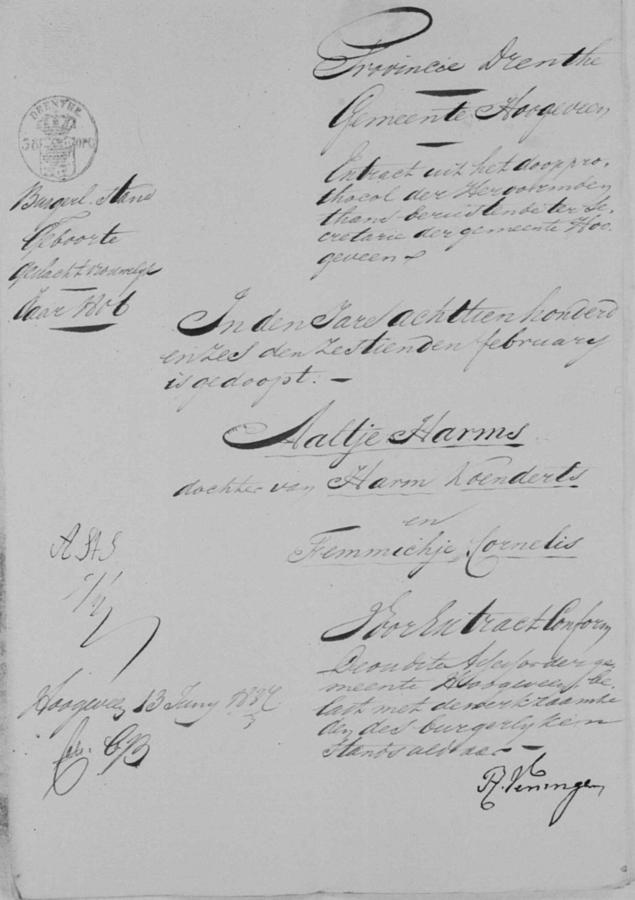 Provincie Drenthe
Gemeente Hoogeveen
Extract uit het dooppro-
thocol der Hervormden
thans berustende ter Se-
cretarie der gemeente Hoo-
geveen
DRENTHE
Burgerl. stand
Geboorte
Geslacht Vrouwelijk
Jaar 1806
In den Jare achttien honderd
en zes den zestienden february
is gedoopt. —
Aaltje Harms
dochter van Harm Koenderts
en
Femmichje Cornelis
Voor Extract Conform
De oudste Assessor der ge-
meente Hoogeveen, be-
last met de werkzaamhe-
den des burgerlyken
Stands aldaar —
Hoogeveen 13 Juny